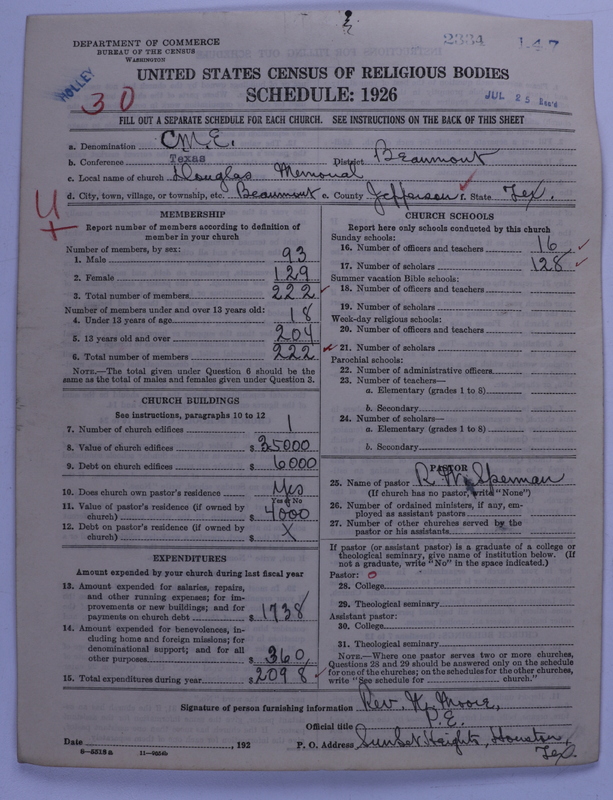 2334 147
DEPARTMENT OF COMMERCE
BUREAU OF THE CENSUS
WASHINGTON
HOLLEY
30
UNITED STATES CENSUS OF RELIGIOUS BODIES
SCHEDULE: 1926
JUL 25 Rec'd
FILL OUT A SEPARATE SCHEDULE FOR EACH CHURCH. SEE INSTRUCTIONS ON THE BACK OF THIS SHEET
a. Denomination C.M.E.
b. Conference Texas District Beaumont
c. Local name of church Douglas Memorial
d. City, town, village, or township, etc. Beaumont e. County Jefferson f. State Tex.
MEMBERSHIP
Report number of members according to definition of
member in your church
Number of members, by sex:
1. Male 93
2. Female 129
3. Total number of members 222
Number of members under and over 13 years old:
4. Under 13 years of age 18
5. 13 years old and over 204
6. Total number of members 222
NOTE.—The total given under Question 6 should be the
same as the total of males and females given under Question 3.
CHURCH BUILDINGS
See instructions, paragraphs 10 to 12
7. Number of church edifices 1
8. Value of church edifices $ 35000
9. Debt on church edifices $ 6000
10. Does church own pastor's residence Yes
Yes or No
11. Value of pastor's residence (if owned by
church) $ 4000
12. Debt on pastor's residence (if owned by
church) $ X
EXPENDITURES
Amount expended by your church during last fiscal year
13. Amount expended for salaries, repairs,
and other running expenses; for im-
provements or new buildings; and for
payments on church debt $ 1738
14. Amount expended for benevolences, in-
cluding home and foreign missions; for
denominational support; and for all
other purposes $ 360
15. Total expenditures during year $ 2098
CHURCH SCHOOLS
Report here only schools conducted by this church
Sunday schools:
16. Number of officers and teachers 16
17. Number of scholars 128
Summer vacation Bible schools:
18. Number of officers and teachers
19. Number of scholars
Week-day religious schools:
20. Number of officers and teachers
21. Number of scholars
Parochial schools:
22. Number of administrative officers
23. Number of teachers—
a. Elementary (grades 1 to 8)
b. Secondary
24. Number of scholars—
a. Elementary (grades 1 to 8)
b. Secondary
PASTOR
25. Name of pastor R. W. Sperman
(If church has no pastor, write "None")
26. Number of ordained ministers, if any, em-
ployed as assistant pastors
27. Number of other churches served by the
pastor or his assistants
If pastor (or assistant pastor) is a graduate of a college or
theological seminary, give name of institution below. (If
not a graduate, write "No" in the space indicated.)
Pastor: 0
28. College
29. Theological seminary
Assistant pastor:
30. College
31. Theological seminary
NOTE.—Where one pastor serves two or more churches,
Questions 28 and 29 should be answered only on the schedule
for one of the churches; on the schedules for the other churches,
write "See schedule for church."
Signature of person furnishing information Rev. K. Moore,
Official title P.E.
Date , 192 P. O. Address Sunset Heights, Houston,
Tex.
8—5518a 11—9554b